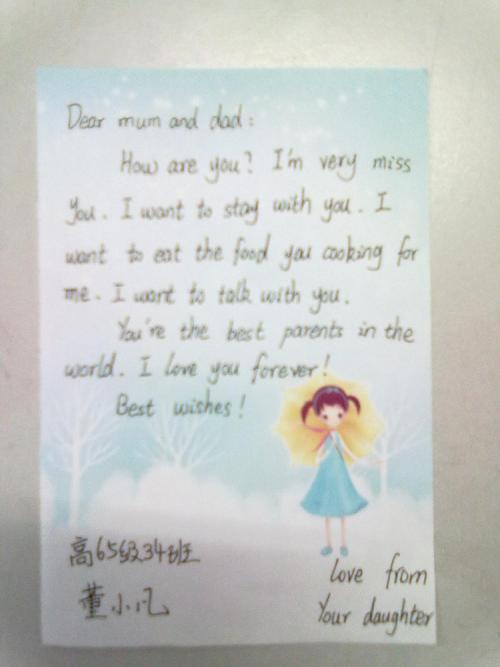 Dear mum and dad:
How are you? I'm very miss
you. I want to stay with you. I
want to eat the food you cooking for
me. I want to talk with you.
You're the best parents in the
world. I love you forever!
Best wishes!
高65级34班
董小凡
love from
Your daughter